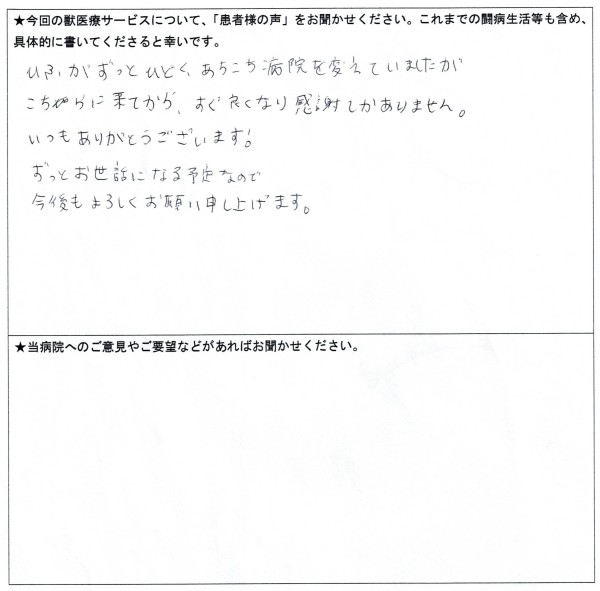 ★今回の獣医療サービスについて、「患者様の声」をお聞かせください。これまでの闘病生活等も含め、
具体的に書いてくださると幸いです。
ひふがずっとひどく、あちこち病院を変えていましたが
こちらに来てから、すぐ良くなり感謝しかありません。
いつもありがとうございます!
ずっとお世話になる予定なので
今後もよろしくお願い申し上げます。
★当病院へのご意見やご要望などがあればお聞かせください。